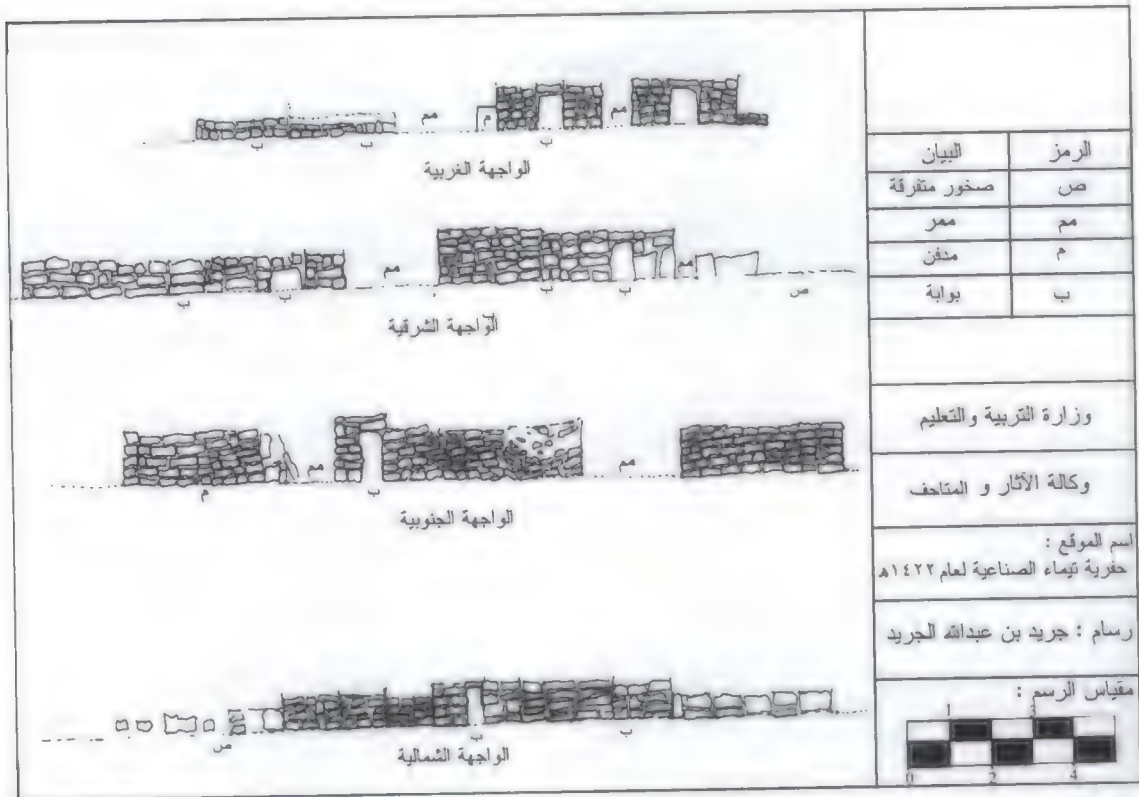 مم م مم
ب ب ب
الواجهة الغربية
مم مم
ب ب ب ب ص
الواجهة الشرقية
مم مم
م ب
الواجهة الجنوبية
ص ب ب
الواجهة الشمالية
الرمز البيان
ص صخور متفرقة
مم ممر
م مدفن
ب بوابة
وزارة التربية والتعليم
وكالة الآثار و المتاحف
اسم الموقع :
حفرية تيماء الصناعية لعام ١٤٢٢ه
رسام : جريد بن عبدالله الجريد
مقياس الرسم :
1 3
0 2 4